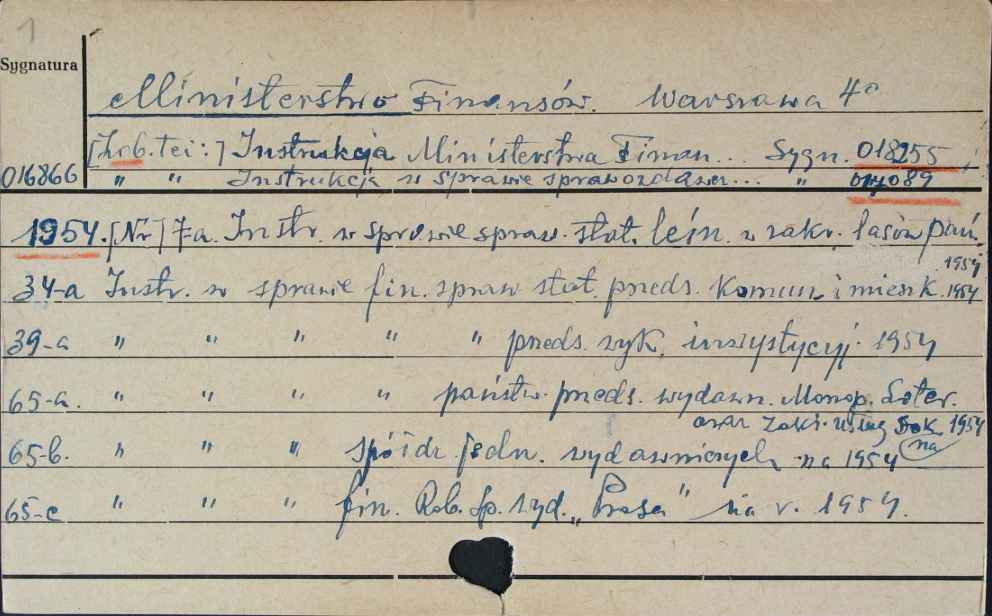 1
Sygnatura
Ministerstwo Finansów. Warszawa 4°
[Zob. też:] Instrukcja Ministerstwa Finan... Sygn. 018255;
016866 " " Instrukcja w sprawie sprawozdawcz... " 089
1954. [Nr] 7-a. Instr. w sprawie spraw. stat. leśn. w zakr. lasów pań.
1954
34-a Instr. w sprawie fin. spraw. stat. przeds. komun. i mieszk. 1954
39-a " " " " " przeds. inwestycyj. 1954
65-a. " " " " państw. przeds. wydawn. Monop. Loter.
oraz Zakł. Usług 1954
65-b. " " " spółdz. jedn. wydawniczych na 1954 na
65-c " " " fin. Rob. Sp. Wyd. „Prasa" na r. 1954.